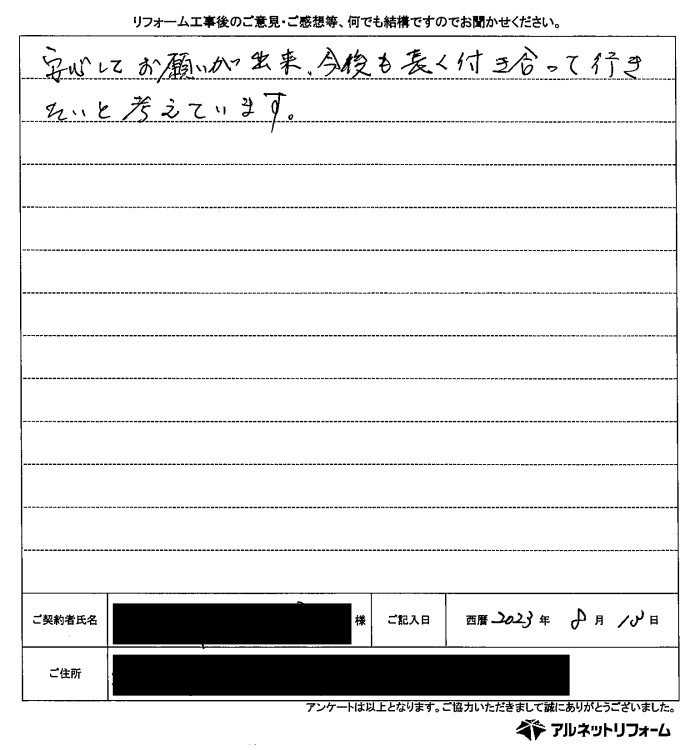 リフォーム工事後のご意見・ご感想等、何でも結構ですのでお聞かせください。
安心してお願いが出来、今後も長く付き合って行き
たいと考えています。
ご契約者氏名 様 ご記入日 西暦 2023 年 8 月 日
ご住所
アンケートは以上となります。ご協力いただきまして誠にありがとうございました。
アルネットリフォーム